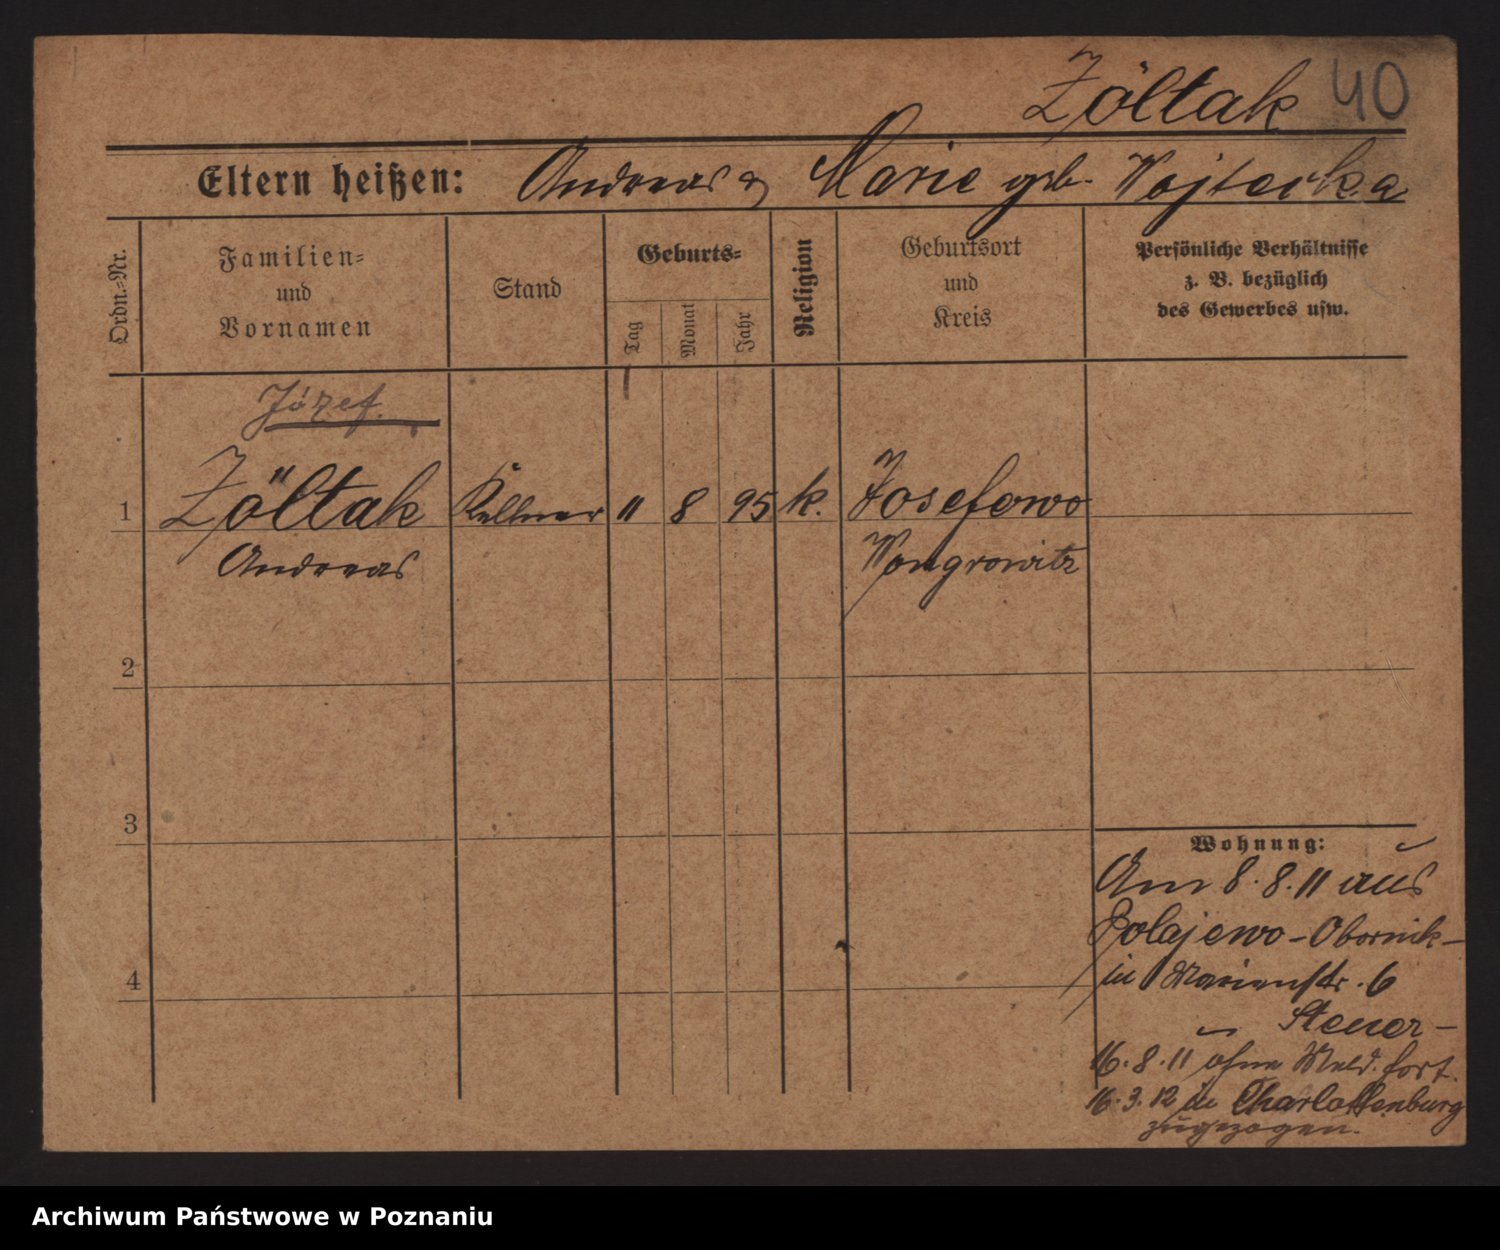 Zöltak 40
Eltern heißen: Andreas & Marie geb. Wojtecka
Ordn.-Nr.
Familien-
und
Vornamen
Stand
Geburts-
Tag
Monat
Jahr
Religion
Geburtsort
und
Kreis
Persönliche Verhältnisse
z. B. bezüglich
des Gewerbes usw.
Józef.
1 Zöltak Kellner 11 8 95 k. Josefowo
Andreas Wongrowitz
2
3
4
Wohnung:
Am 8.8.11 aus
Polajewo-Obornik-
in Marienstr. 6
Steuer-
16.8.11 ohne Meld. fort.
16.3.12 in Charlottenburg
zugezogen.
Archiwum Państwowe w Poznaniu